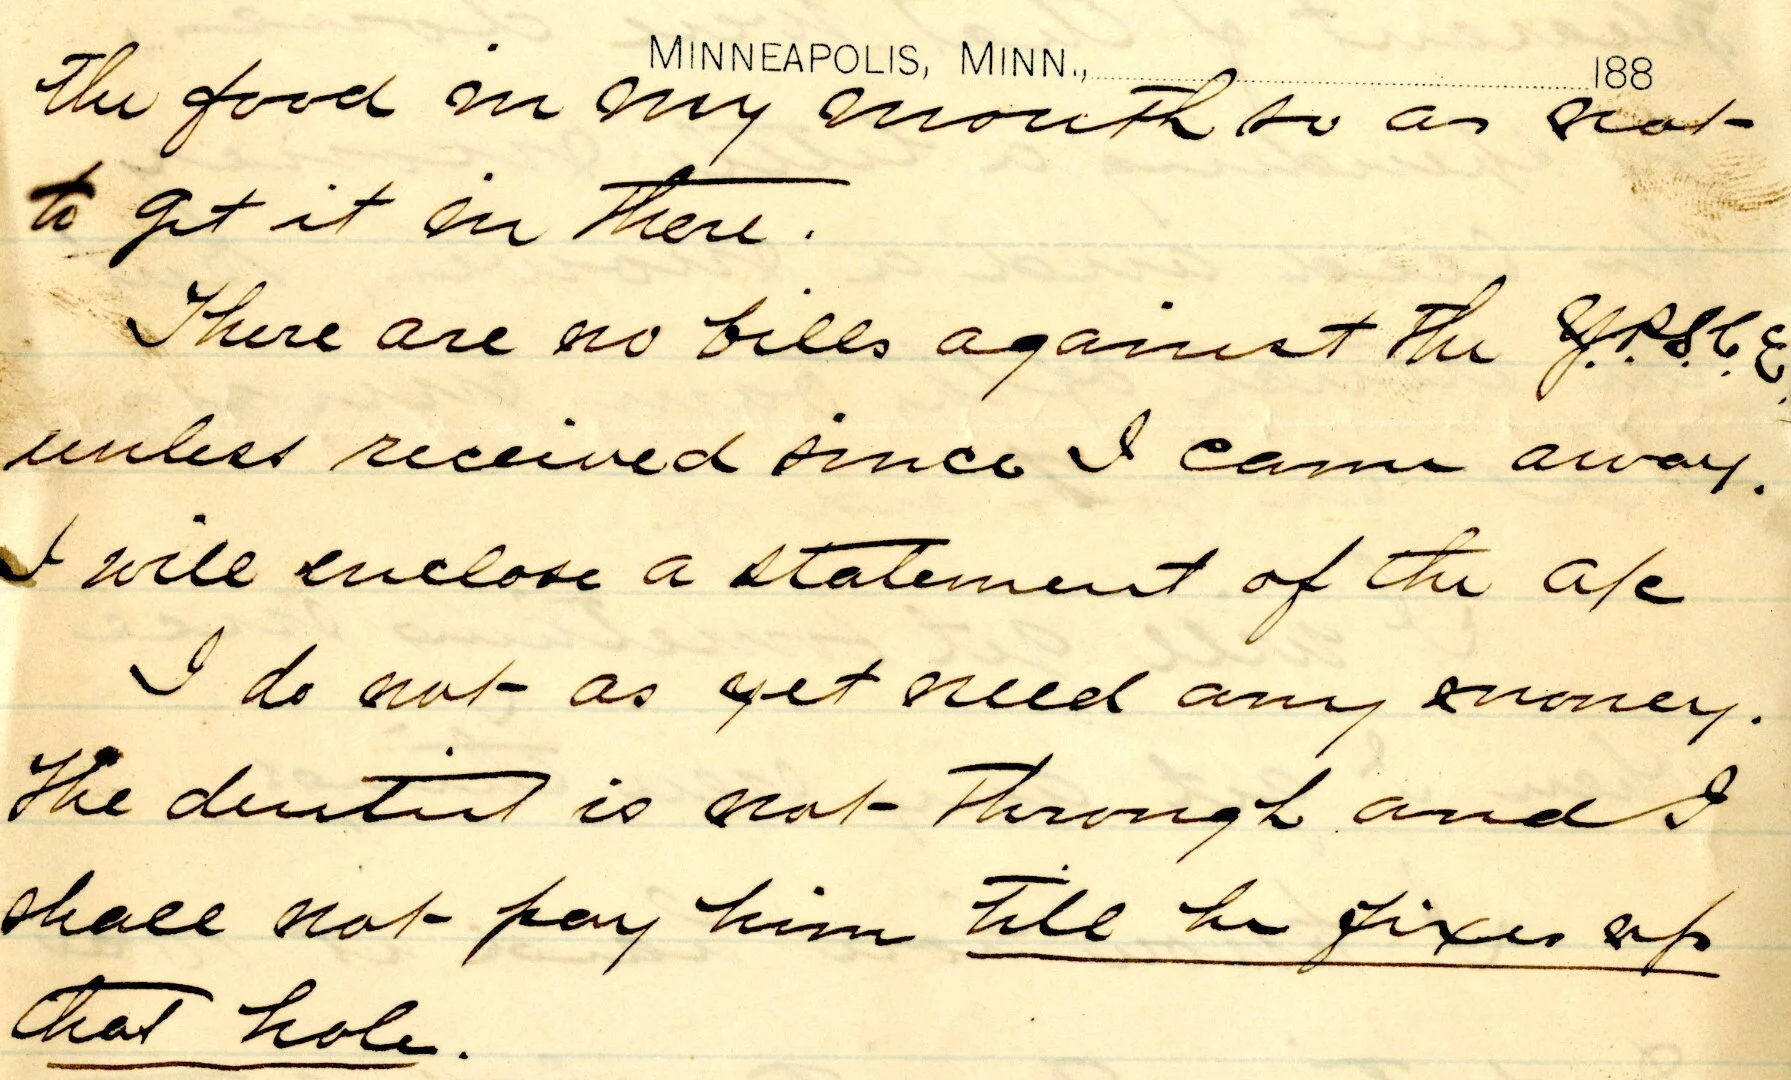 MINNEAPOLIS, MINN., 188
the food in my mouth so as not
to get it in there.
There are no bills against the Y.P.S.C.E.
unless received since I came away.
I will enclose a statement of the a/c
I do not as yet need any money.
The dentist is not through and I
shall not pay him till he fixes up
that hole.